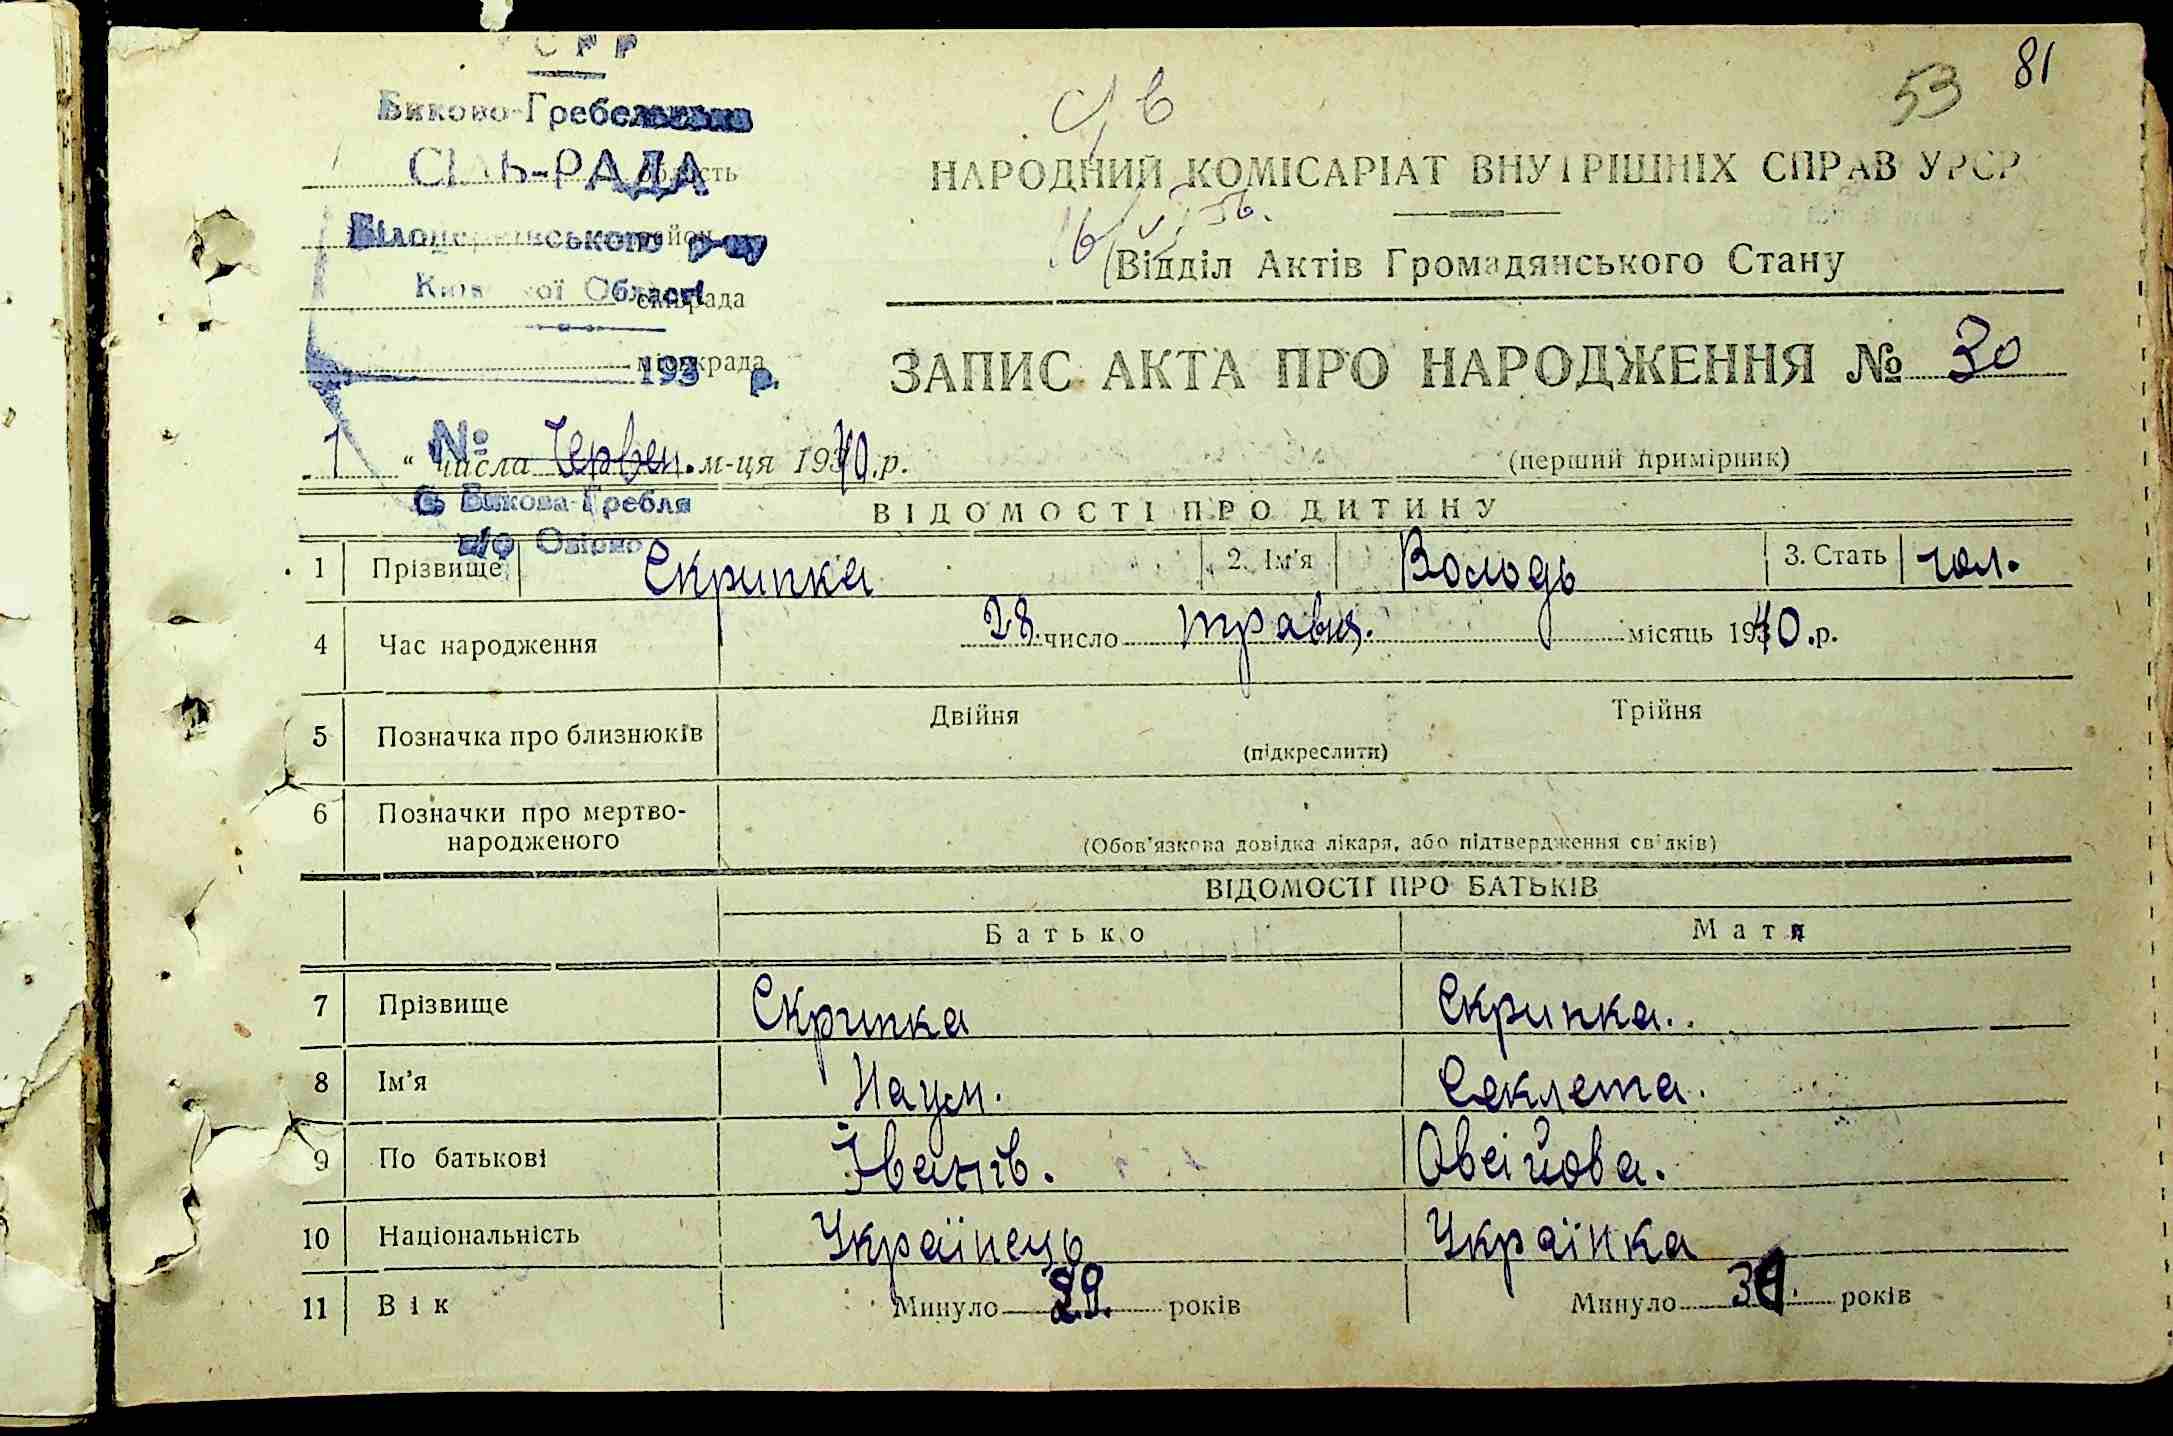 УСРР
Биково-Гребельська
СІЛЬ-РАДА
область
Білоцерківського р-ну
район
Київської Області
сільрада
міськрада
193 р.
№
С. Бикова-Гребля
п/о Озірно
53
81
НАРОДНИЙ КОМІСАРІАТ ВНУТРІШНІХ СПРАВ УРСР
Відділ Актів Громадянського Стану
ЗАПИС АКТА ПРО НАРОДЖЕННЯ № 30
1 " числа Червен. м-ця 1940 .р.
(перший примірник)
ВІДОМОСТІ ПРО ДИТИНУ
1 Прізвище Скрипка 2. Ім'я Володь 3. Стать чол.
4 Час народження 28 число травня. місяць 1940.р.
5 Позначка про близнюків Двійня Трійня
(підкреслити)
6 Позначки про мертво-
народженого
(Обов'язкова довідка лікаря, або підтвердження свідків)
ВІДОМОСТІ ПРО БАТЬКІВ
Батько Мати
7 Прізвище Скрипка Скрипка.
8 Ім'я Наум. Секлета.
9 По батькові Іванів. Овсійова.
10 Національність Українець Українка
11 Вік Минуло 29. років Минуло років